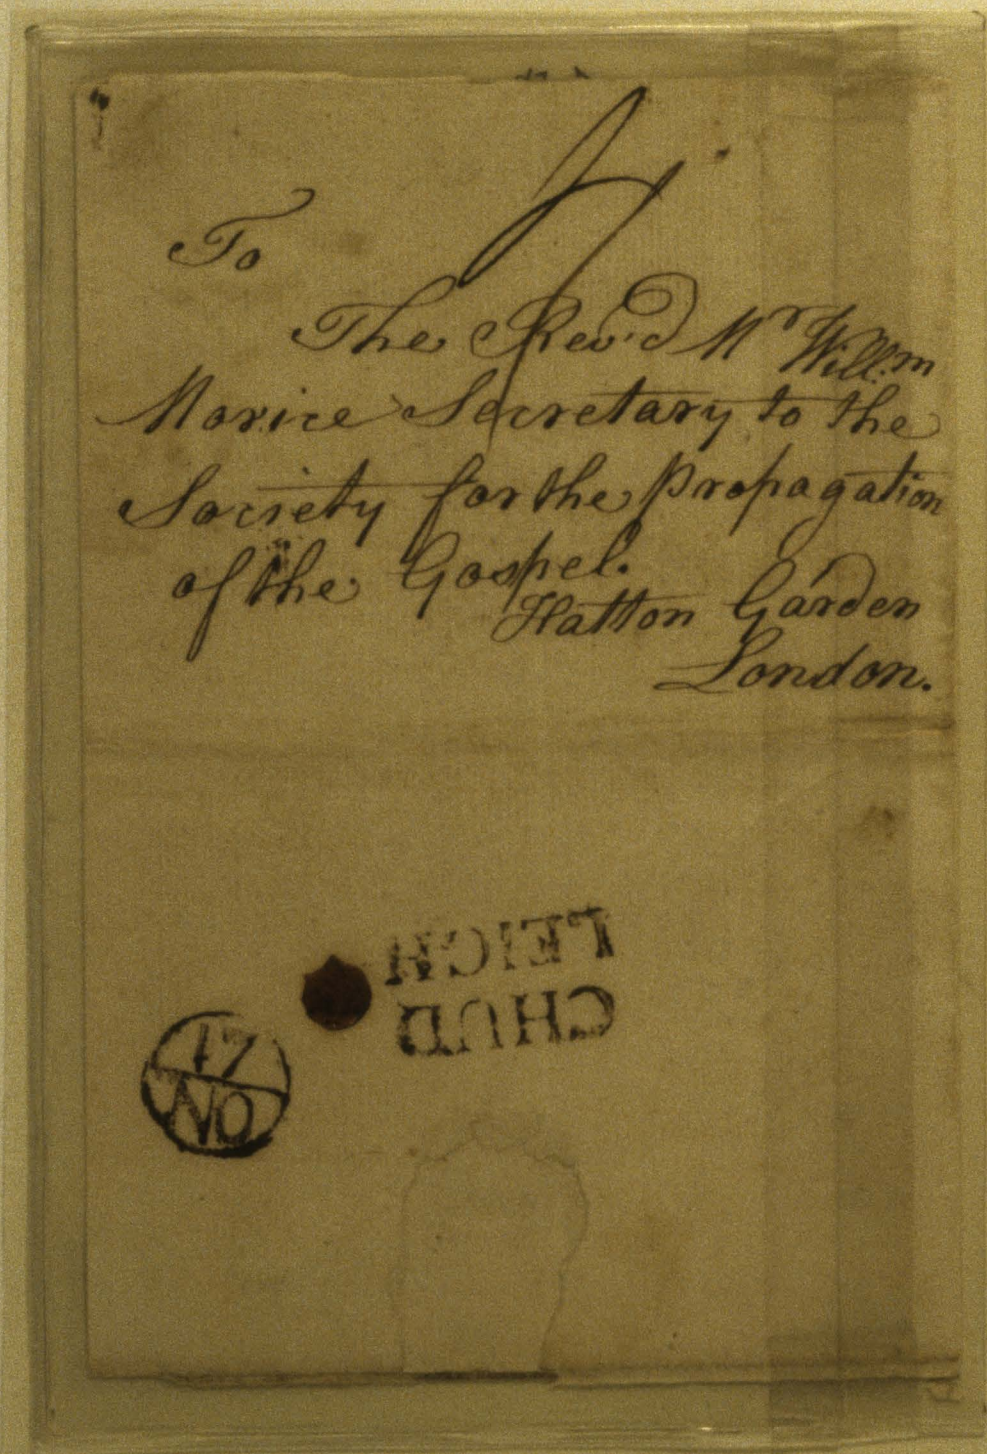 To
The Rev.d Mr Will.m
Morice Secretary to the
Society for the Propagation
of the Gospel.
Hatton Garden
London.
CHUD
LEIGH
17
NO